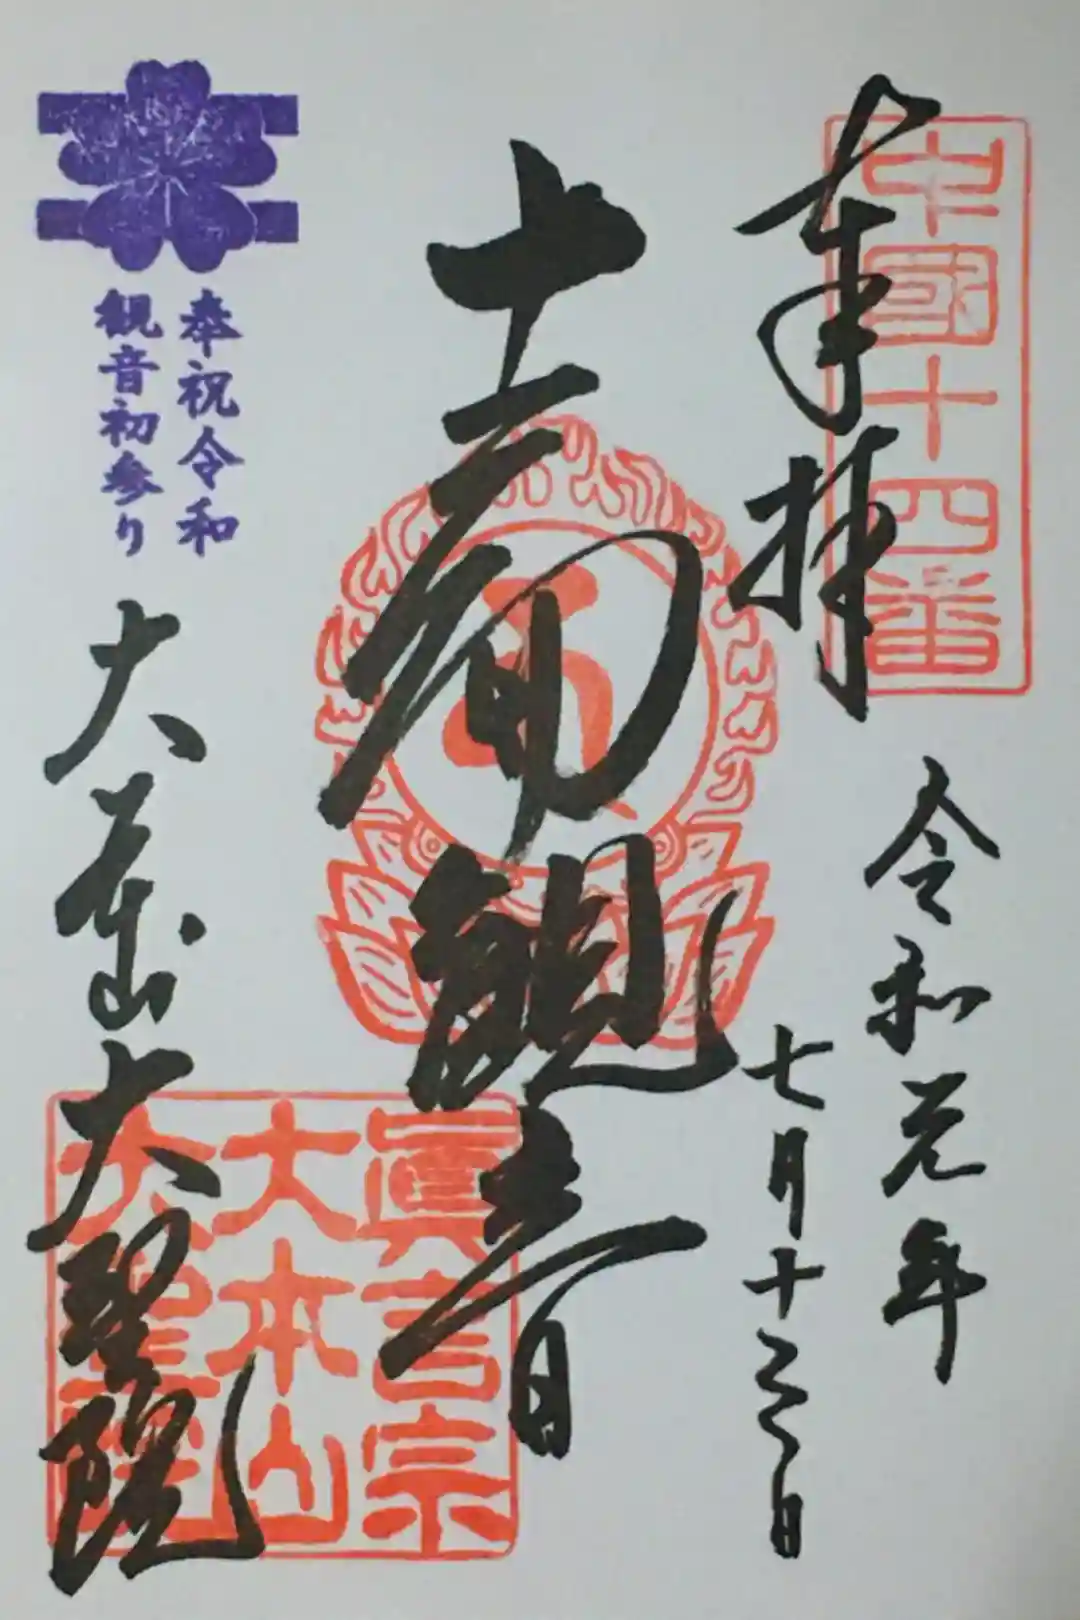 奉拝
中國十四番
令和元年
七月十三日
十一面観音
眞言宗
大本山
大聖院
奉祝令和
観音初参り
大本山大聖院